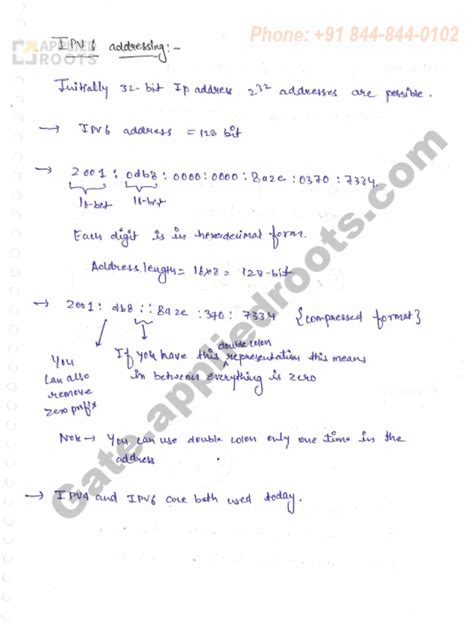 Phone: +91 844-844-0102
APPLIED
ROOTS
IPV6 addressing:-
Initially 32-bit Ip address 2^32 addresses are possible.
→ IPV6 address = 128 bit
→ 2001: 0db8: 0000: 0000: 8a2e: 0370: 7334
16-bit 16-bit
Each digit is in hexadecimal form.
Address length = 16x8 = 128-bit
→ 2001: db8:: 8a2e: 370: 7334 {compressed format}
double colon
You If you have this representation this means
can also in between everything is zero
remove
zero prefix
Note → You can use double colon only one time in the
address
→ IPV4 and IPV6 are both used today.
Gate.appliedroots.com